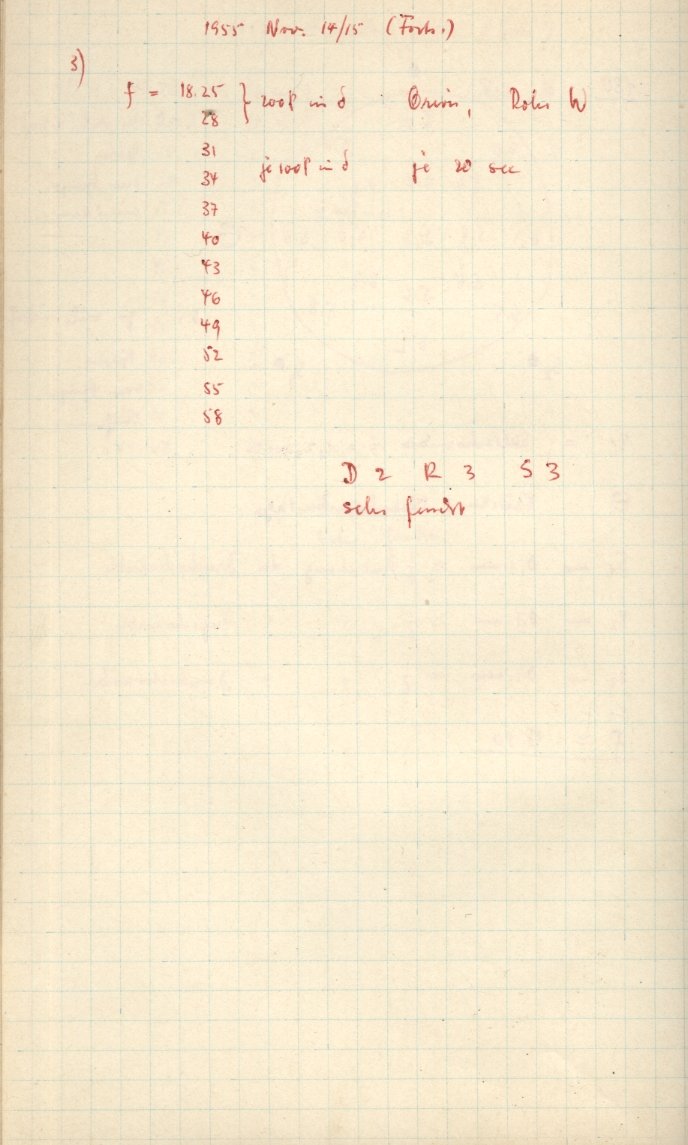 1955 Nov. 14/15 (Forts.)
3)
f = 18.25 } 200P in δ Orion, Rohr W
28
31
34 je 100P in δ je 20 sec
37
40
43
46
49
52
55
58
D 2 R 3 S 3
sehr feucht